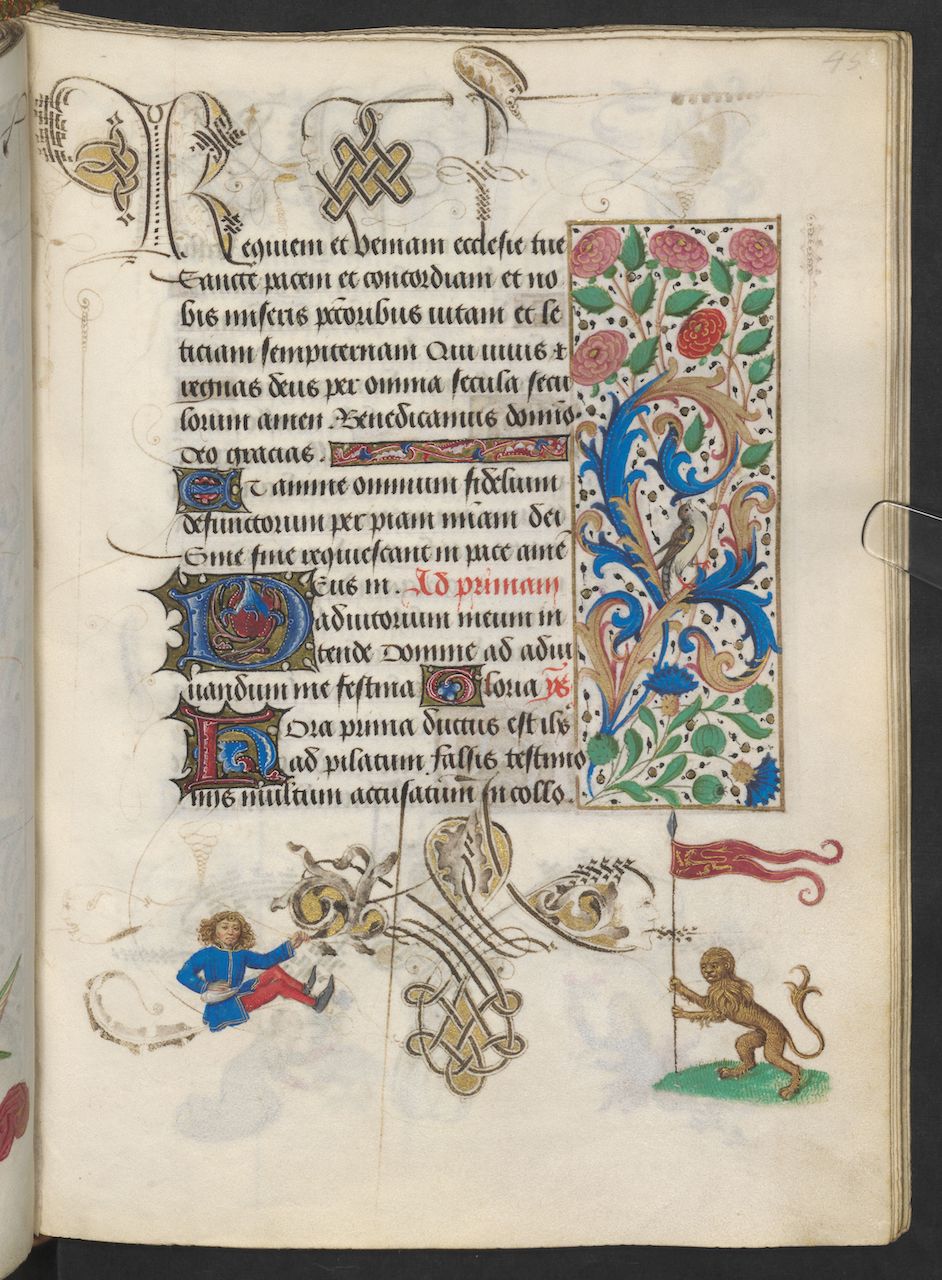 45
Requiem et veniam ecclesie tue
Sancte pacem et concordiam et no
bis miseris pctoribus vitam et le
ticiam sempiternam Qui vivis ⁊
regnas deus per omnia secula secu
lorum amen. Benedicamus domino
Deo gracias.
Et anime omnium fidelium
defunctorum per piam miam dei
Sine fine requiescant in pace amē
Deus in. Ad primam
adiutorium meum in
tende Domine ad adiu
vandum me festina Gloria p̄s
Hora prima ductus est ihs
ad pilatum falsis testimo
niis multum accusatum In collo.